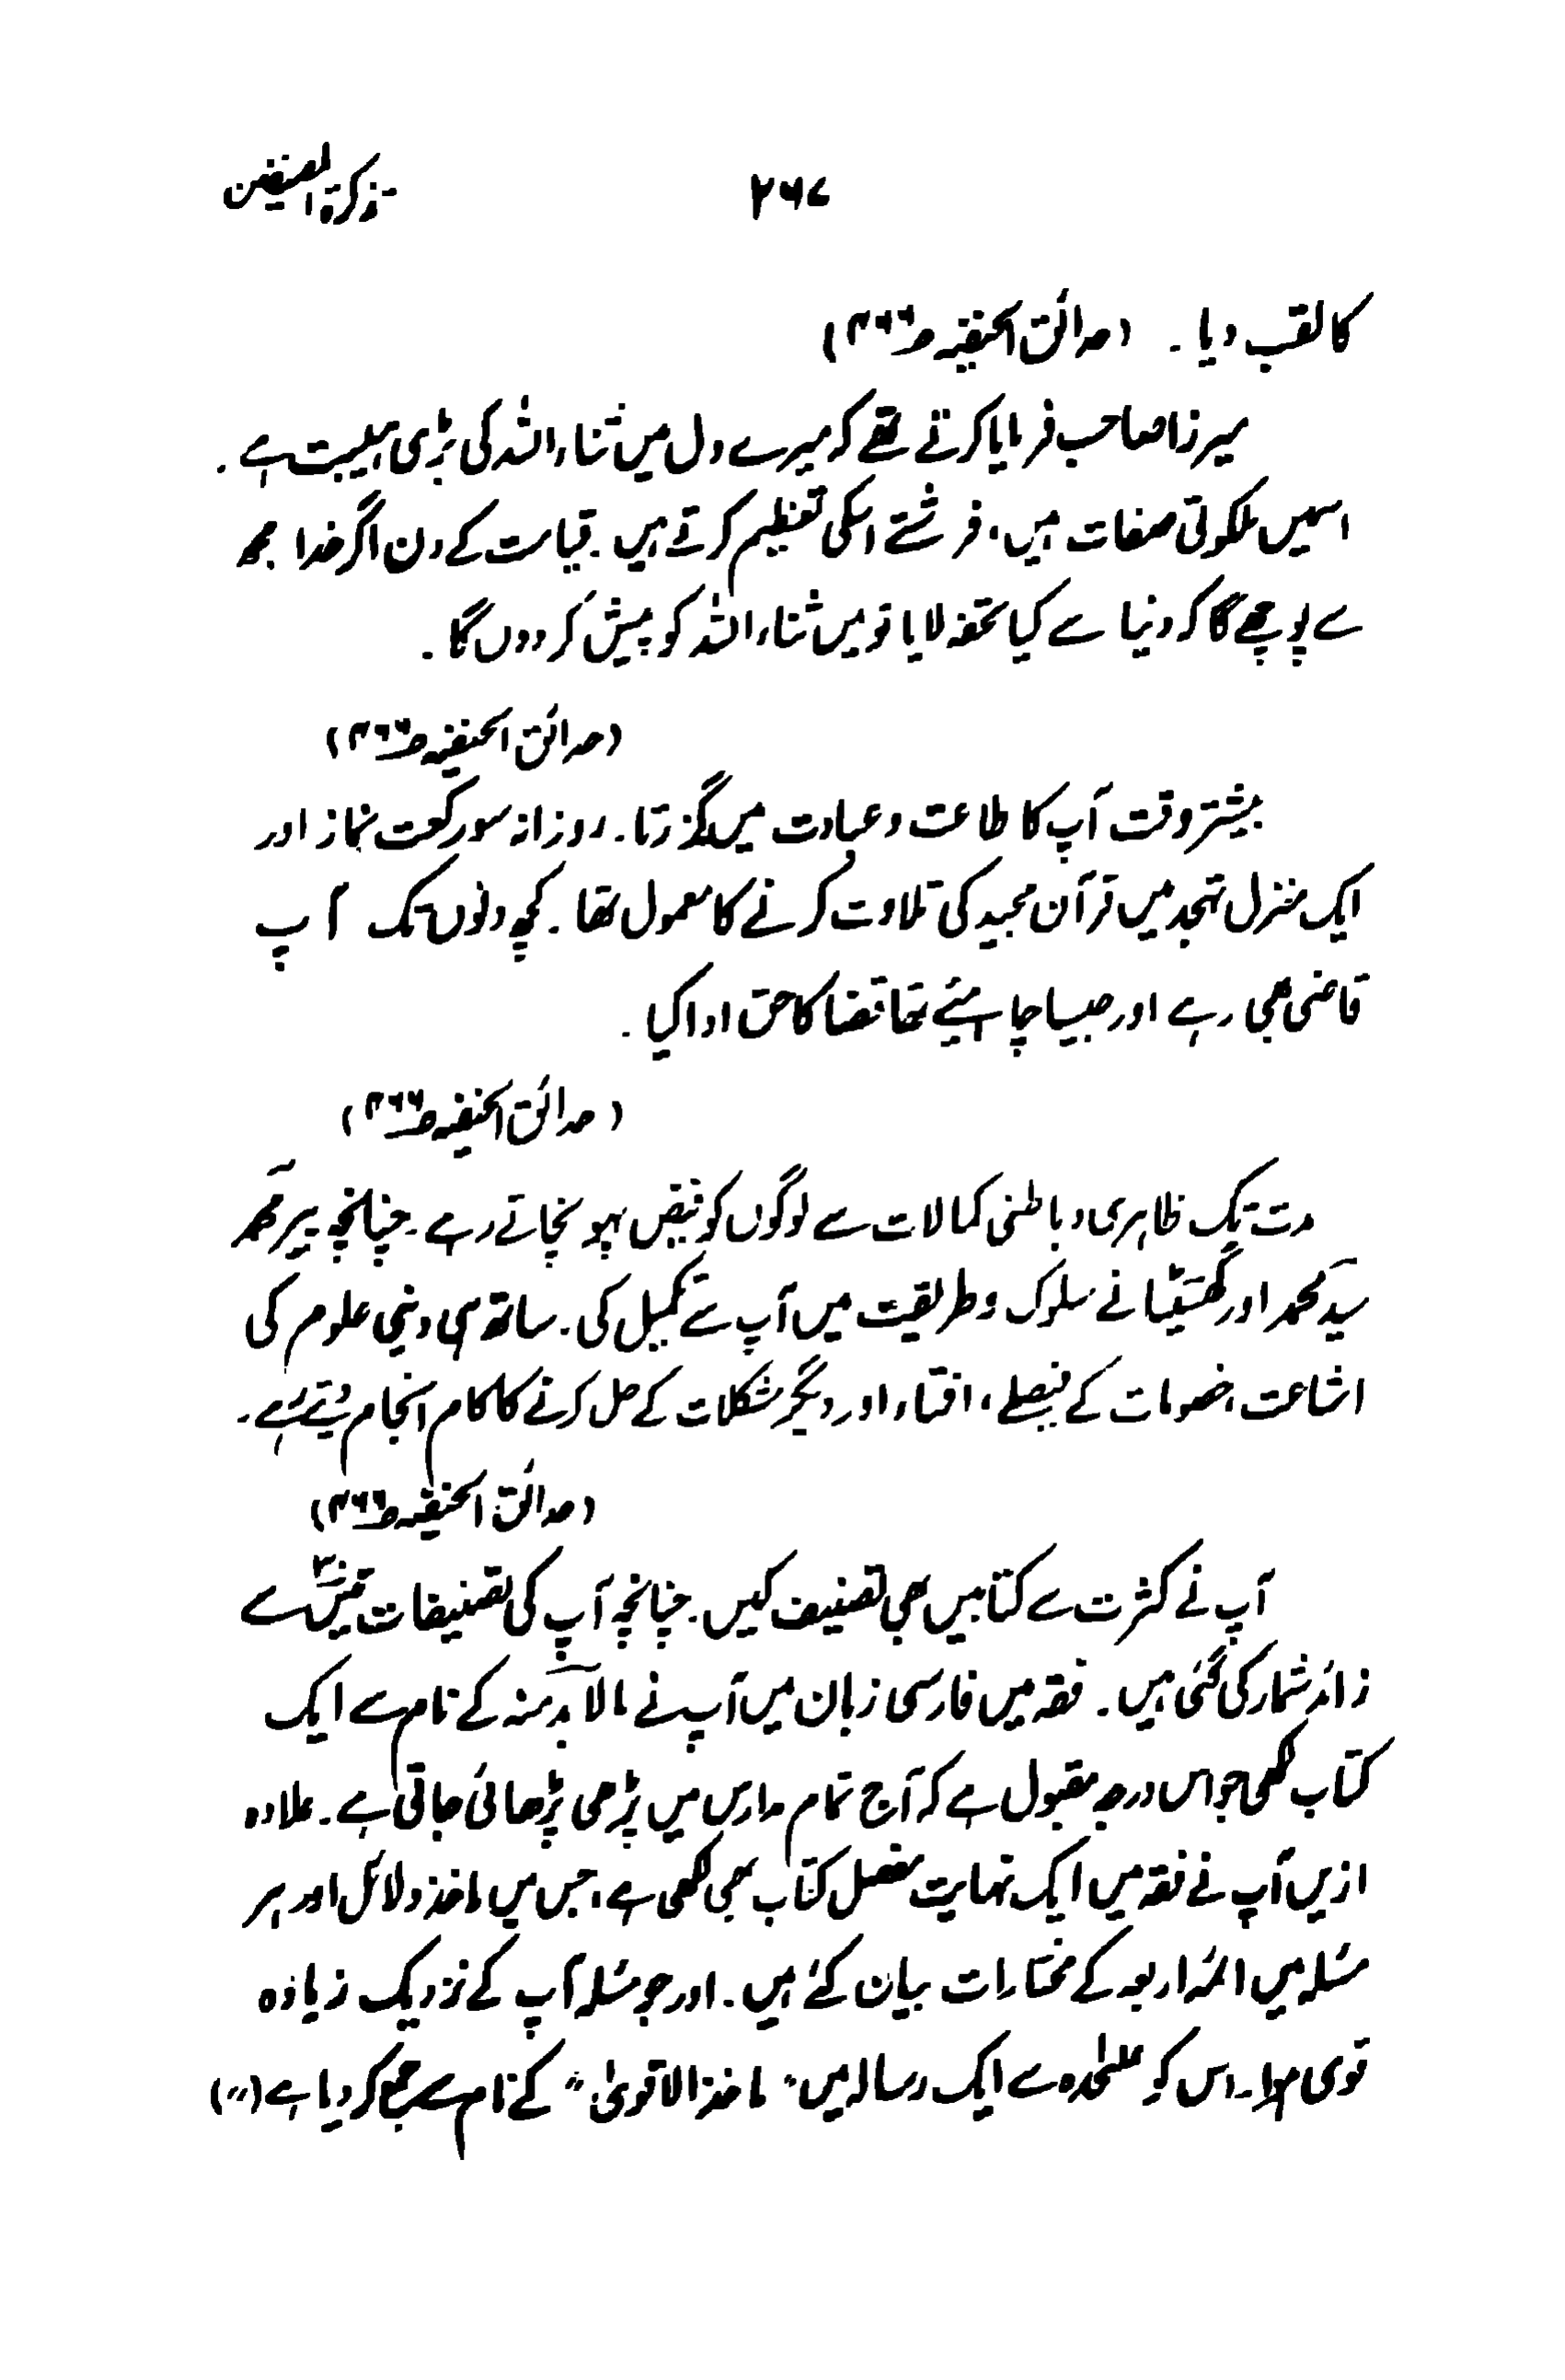 تذکرۃ المصنفین
۲۶۷
کا لقب دیا۔ (حدائق الحنفیہ ص۴۶۶)
میرزا صاحب فرمایا کرتے تھے کہ میرے دل میں ثناء اللہ کی بڑی ہیبت ہے۔
اسمیں ملکوتی صفات ہیں، فرشتے اسکی تعظیم کرتے ہیں۔ قیامت کے دن اگر خدا مجھ
سے پوچھے گا کہ دنیا سے کیا تحفہ لایا تو میں ثناء اللہ کو پیش کر دوں گا۔
(حدائق الحنفیہ ص۴۶۶)
بیشتر وقت آپ کا طاعت و عبادت میں گزرتا۔ روزانہ سو رکعت نماز اور
ایک منزل تہجد میں قرآن مجید کی تلاوت کرنے کا معمول تھا۔ کچھ دنوں تک آپ
قاضی بھی رہے اور جیسا چاہئیے تھا قضا کا حق ادا کیا۔
(حدائق الحنفیہ ص۴۶۶)
مدت تک ظاہری و باطنی کمالات سے لوگوں کو فیض پہونچاتے رہے۔ چنانچہ پیر محمد
سید محمد اور گھسیٹا نے سلوک و طریقت میں آپ سے تکمیل کی۔ ساتھ ہی دینی علوم کی
اشاعت، خصومات کے فیصلے، افتاء اور دیگر مشکلات کے حل کرنے کا کام انجام دیتے رہے۔
(حدائق الحنفیہ ص۴۶۶)
آپ نے کثرت سے کتابیں بھی تصنیف کیں۔ چنانچہ آپ کی تصنیفات تیس۳۰ سے
زائد شمار کی گئی ہیں۔ فقہ میں فارسی زبان میں آپ نے مالابدمنہ کے نام سے ایک
کتاب لکھی جو اس درجہ مقبول ہے کہ آج تمام مدارس میں پڑھی پڑھائی جاتی ہے۔ علاوہ
ازیں آپ نے فقہ میں ایک نہایت مفصل کتاب بھی لکھی ہے، جس میں ماخذ و دلائل اور ہر
مسئلہ میں ائمہ اربعہ کے مختارات بیان کئے ہیں۔ اور جو مسئلہ آپ کے نزدیک زیادہ
قوی ہوا۔ اس کو علیٰحدہ سے ایک رسالہ میں "ماخذ الاقویٰ" کے نام سے جمع کر دیا ہے (〃)